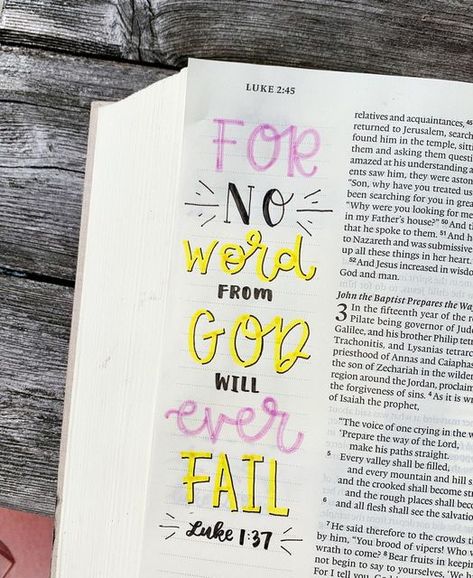 LUKE 2:45
FOR
NO
word
FROM
GOD
WILL
ever
FAIL
Luke 1:37
relatives and acquaintances, 45
returned to Jerusalem, search
found him in the temple, sitti
them and asking them questi
amazed at his understanding a
ents saw him, they were aston
"Son, why have you treated us
been searching for you in great
"Why were you looking for me
in my Father's house?" 50 And th
that he spoke to them. 51 And h
to Nazareth and was submissive
up all these things in her heart.
52 And Jesus increased in wisdom
God and man.
John the Baptist Prepares the Way
3 In the fifteenth year of the re
Pilate being governor of Judea
Galilee, and his brother Philip tetr
Trachonitis, and Lysanias tetrarc
priesthood of Annas and Caiaphas
the son of Zechariah in the wilder
region around the Jordan, proclaim
the forgiveness of sins. 4 As it is wr
of Isaiah the prophet,
"The voice of one crying in the w
'Prepare the way of the Lord,
make his paths straight.
5 Every valley shall be filled,
and every mountain and hill s
and the crooked shall become str
and the rough places shall beco
6 and all flesh shall see the salvation
7 He said therefore to the crowds th
by him, "You brood of vipers! Who w
wrath to come? 8 Bear fruits in keepi
not begin to say to yourselves, 'We h
For I tell you, God is able